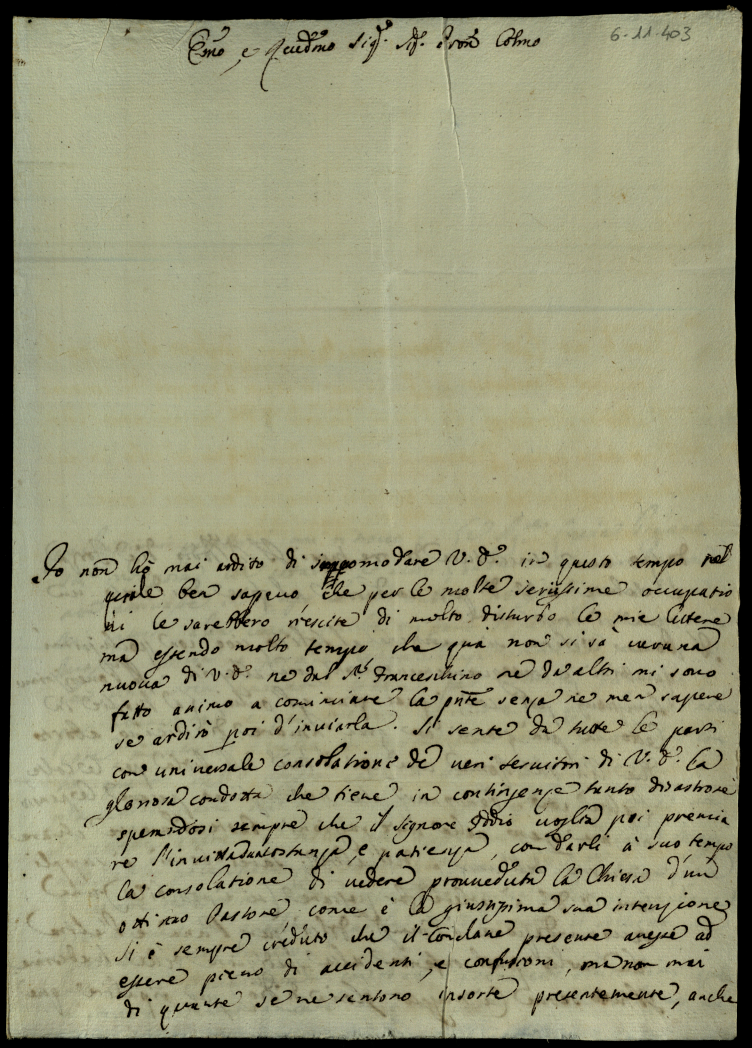 Emo, e Reudmo Sigr. Sigr. Pron Colmo
6-11-403
Io non hò mai ardito di incomodare V.E. in questo tempo nel
quale ben sapevo che per le molte seriissime occupatio
ni le sarebbero riescite di molto disturbo le mie lettere
mà essendo molto tempo che quà non si sà veruna
nuova di V.E. ne dal Sr. Franceschino ne da altri mi sono
fatto animo a cominciare la pnte senza ne men sapere
se ardirò poi d'inviarla. Si sente da tutte le parti
con universale consolatione de veri servitori di V.E. la
gloriosa condotta che tiene in contingenze tanto disastrose
sperandosi sempre che il Signore Iddio voglia poi premia
re l'invitta sua costanza, e patienza, con darli à suo tempo
la consolatione di vedere provveduta la Chiesa d'un
ottimo Pastore, come è la giustissima sua intenzione
Si è sempre creduto che il Conclave presente avesse ad
essere pieno di accidenti, e confusioni, ma non mai
di quante se ne sentono insorte presentemente, anche